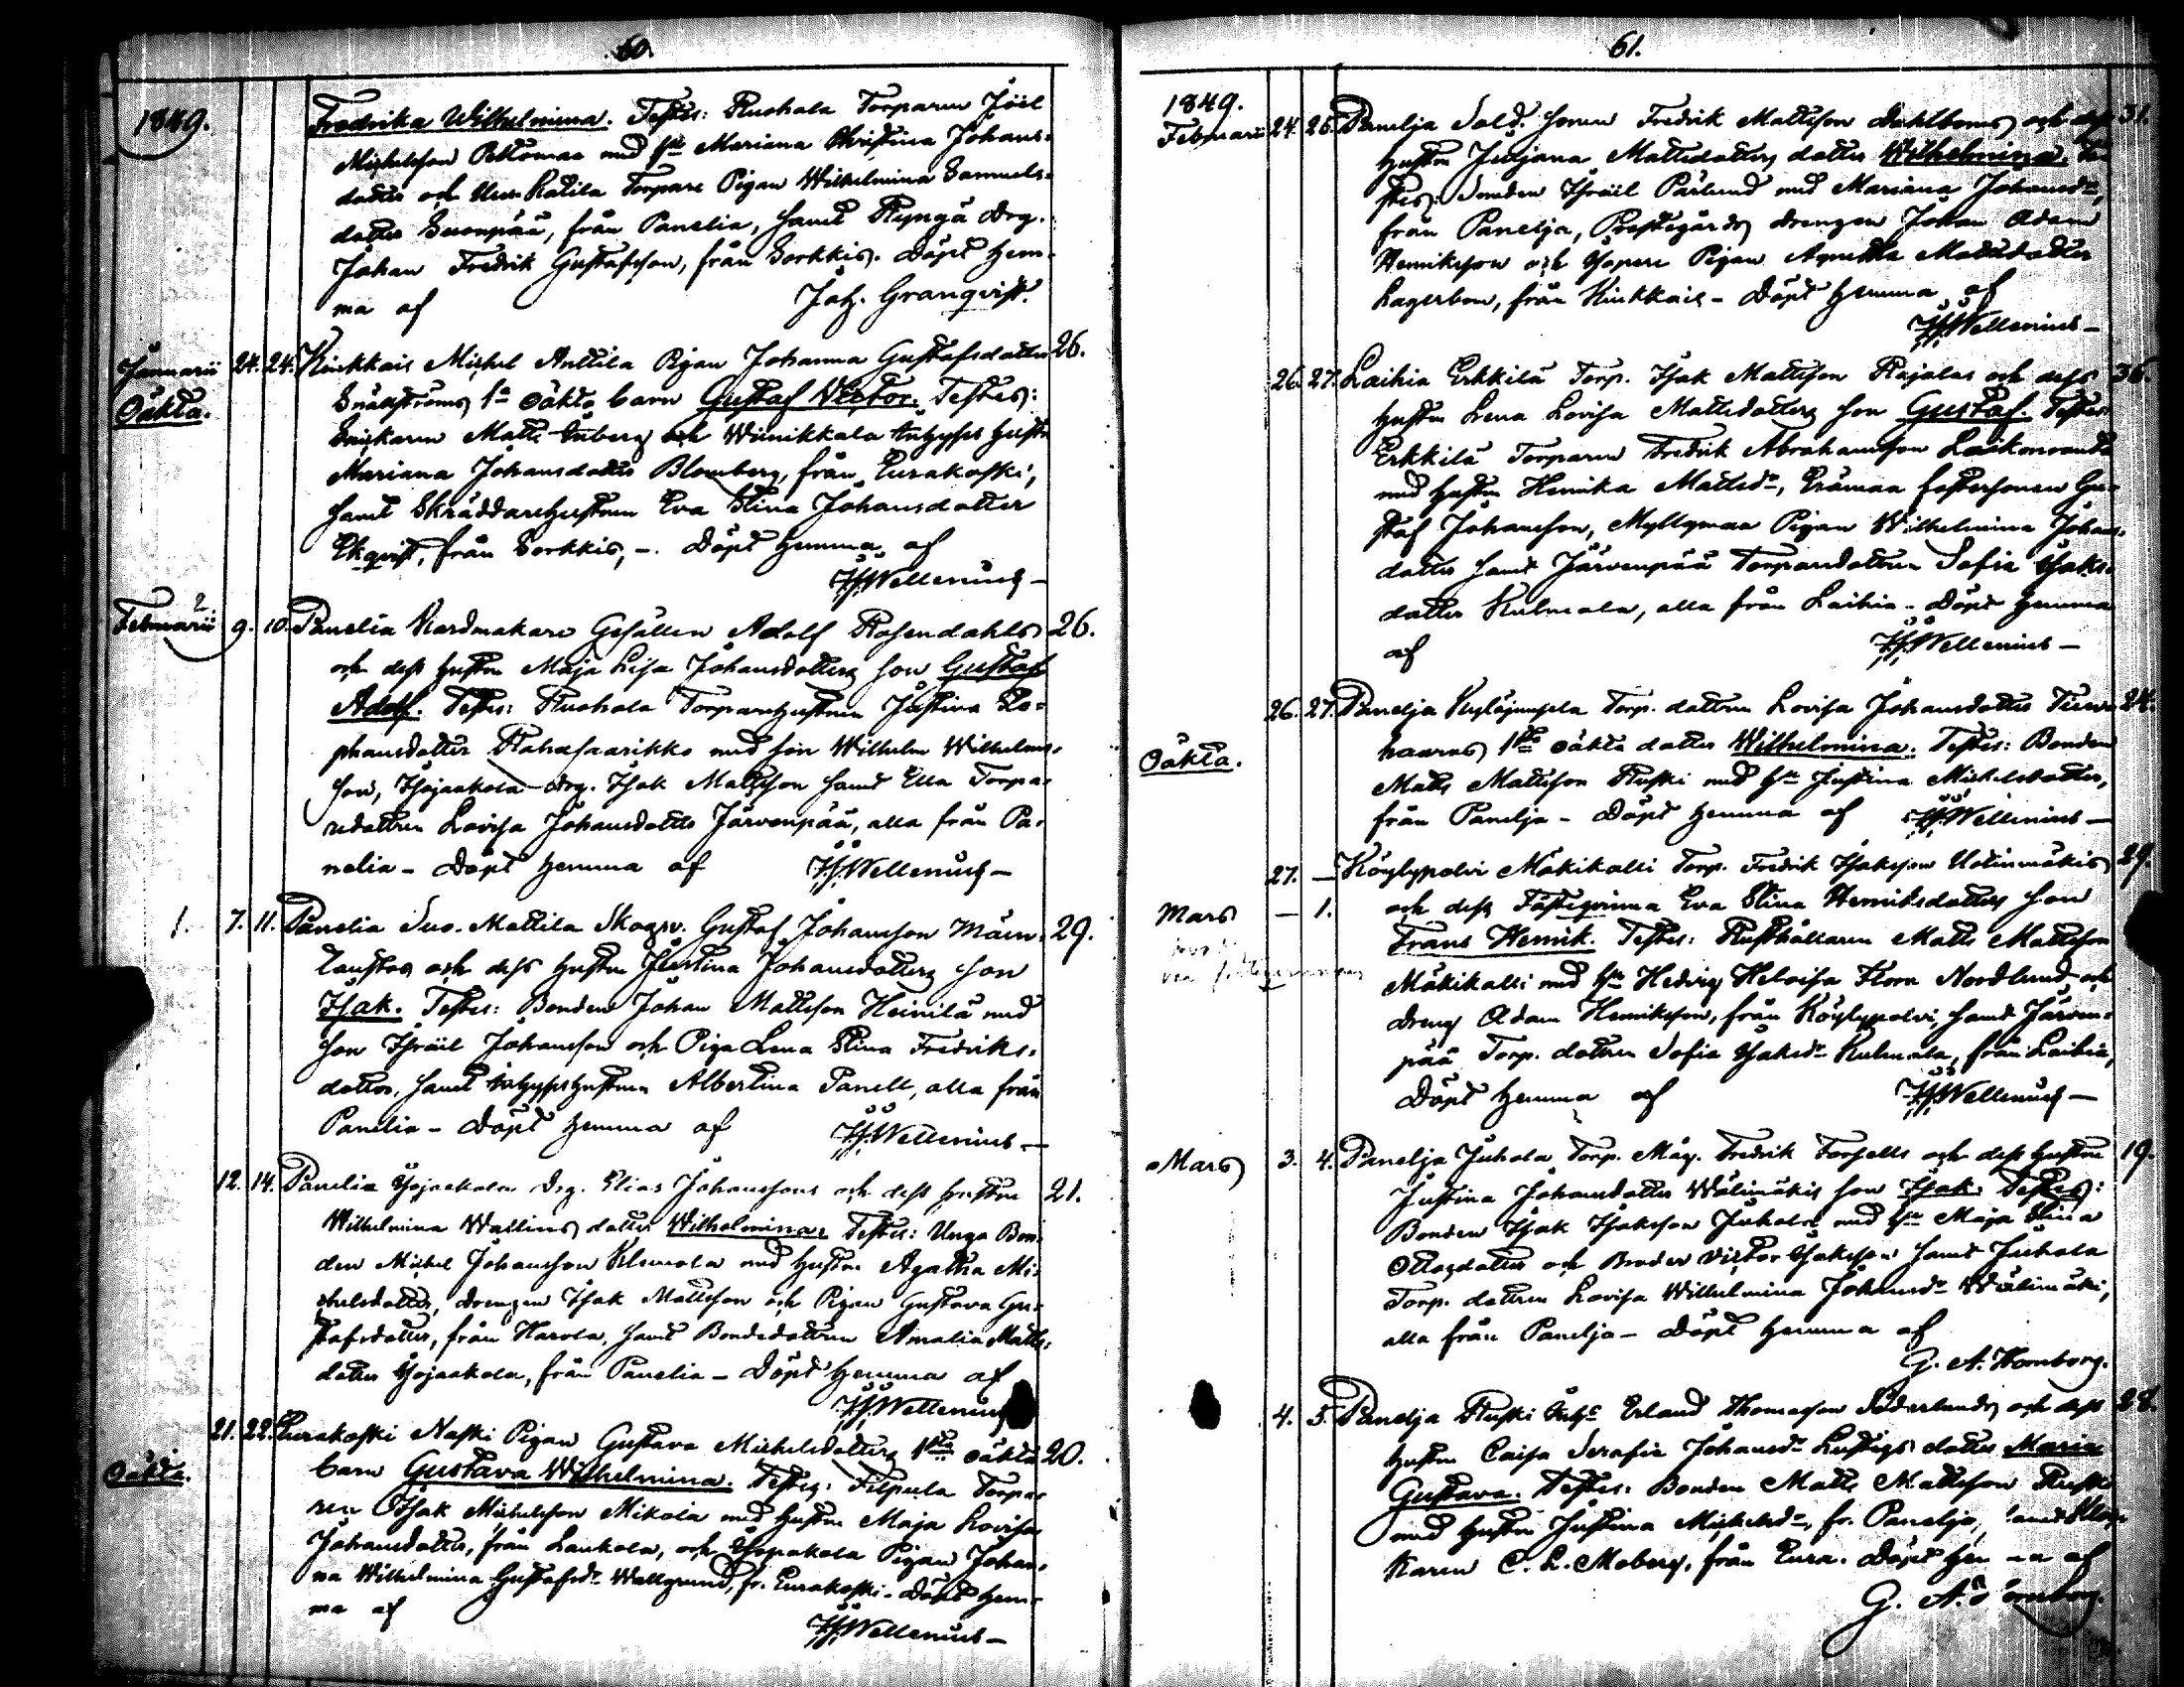 60.
1849.
Fredrika Wilhelmina. Testes: Ruohola Torparen Joël
Michelsson Peltomaa med h:u Mariana Christina Johans-
dotter och Uusi Katila Torpare Pigan Wilhelmina Samuels-
dotter Suonpää, från Panelia, samt Ryngä drg.
Johan Fredrik Gustafsson, från Sorkkis. Döpt hem-
ma af Joh. Granqvist.
Januarii 24. 24. Kiukkais Michel Anttila Pigan Johanna Gustafsdotter 26.
Oäkta. 1:a oäkta barn Gustaf Victor. Testes:
Matts och Wiinikkala Inhyses hustr.
Mariana Johansdotter Blomberg, från Eurakoski,
samt Skräddarehustrun Eva Stina Johansdotter
Ekqvist, från Sorkkis, -. Döpt hemma af
Wellenius -
2.
Februarii 9. 10. Panelia Gesällen Adolf Rosendahls 26.
och dess hustru Maja Lisa Johansdotters son Gustaf
Adolf. Testes: Ruohola Torparehustrun Justina
Stephansdotter med son Wilhelm Wilhelms-
son, Isojaakola drg. Isak Mattsson samt Ella Torpa-
redottren Lovisa Johansdotter Järvenpää, alla från Pa-
nelia - Döpt hemma af Wellenius -
1. 7. 11. Panelia Suo-Mattila Gustaf Johansson 29.
och dess hustru Justina Johansdotters son
Isak. Testes: Bonden Johan Mattsson Heinilä med
son Israël Johansson och Piga Lena Stina Fredriks-
dotter, samt Inhyseshustrun Albertina Panell, alla från
Panelia - Döpt hemma af Wellenius -
12. 14. Panelia Isojaakola Drg. Elias Johanssons och dess hustru 21.
Wilhelmina Wallins dotter Wilhelmina. Testes: Unga Bon-
den Michel Johansson med hustru Agatha Mi-
chelsdotter, drengen Isak Mattsson och Pigan Gustava Gu-
stafsdotter, från Harola, samt Bondedottren Amalia Matts-
dotter Isojaakola, från Panelia - Döpt hemma af
Wellenius
21. 22. Eurakoski Naski Pigan Gustava Michelsdotters 1:sta oäkta 20.
Oäkta. barn Gustava Wilhelmina. Testes: Filpula Torpa-
ren Isak Michelsson Mikola med hustru Maja Lovisa
Johansdotter, från Laukola, och Pigan Johan-
na Wilhelmina Gustafsd:r Wallgrund, fr. Eurakoski. Döpt hem-
ma af
Wellenius -
61.
1849.
Februarii 24. 26. Panelja Sold. sonen Fredrik Mattsson Dahlboms och dess 31.
hustru Juljana Mattsdotters dotter Wilhelmina. Te-
stes: Bonden Israël Pärlund med Mariana Johansd:r,
från Panelja, Prestegårds drengen Johan Adam
Henriksson och Pigan Agnetha Mattsdotter
Lagerbom, från Kiukkais - Döpt hemma af
Wellenius -
26. 27. Laihia Erkkilä Torp. Isak Mattsson Rajalas och dess 36.
hustru Lena Lovisa Mattsdotters son Gustaf. Testes:
Erkkilä Torparen Fredrik Abrahamsson
med hustru Henrika Mattsd:r, Erämaa fostersonen Gu-
staf Johansson, Myllymaa Pigan Wilhelmina Johans-
dotter samt Järvenpää Torparedottren Sofia Isaks-
dotter Kulmala, alla från Laihia - Döpt hemma
af Wellenius -
26. 27. Panelja Torp. dottren Lovisa Johansdotter 24.
Oäkta. 1:sta oäkta dotter Wilhelmina. Testes: Bonden
Matts Mattsson Ruski med h:u Justina Michelsdotter,
från Panelja - Döpt hemma af Wellenius -
27. - Köylypolvi Mäkikalli Torp. Fredrik Isaksson 29.
Mars - 1. och dess Fästeqvinna Eva Stina Henriksdotters son
Frans Henrik. Testes: Rusthållaren Matts Mattsson
Mäkikalli med h:u Hedvig Helvisa Flora Nordlund och
dreng Adam Henriksson, från Köylypolvi, samt Järven-
pää Torp. dottren Sofia Isaksd:r Kulmala, från Laihia,
Döpt hemma af Wellenius -
Mars 3. 4. Panelja Juhola Torp. Måg. Fredrik Forsells och dess hustru 19.
Justina Johansdotter Wälimäkis son Isak. Testes:
Bonden Isak Isaksson Juhola med h:u Maja Stina
Ottosdotter och Broder Victor Isaksson samt Juhola
Torp. dottren Lovisa Wilhelmina Johansd:r Wälimäki,
alla från Panelja - Döpt hemma af
G. A. Homborg.
4. 5. Panelja Ruski Inh:s Erland Thomasson Söderlunds och dess 28.
hustru Caisa Serafia Johansd:r Lustigs dotter Maria
Gustava. Testes: Bonden Matts Mattsson Ruski
med hustru Justina Michelsd:r, fr. Panelja, samt Kloc-
karen C. L. Moberg, från Eura. Döpt hemma af
G. A. Homborg.